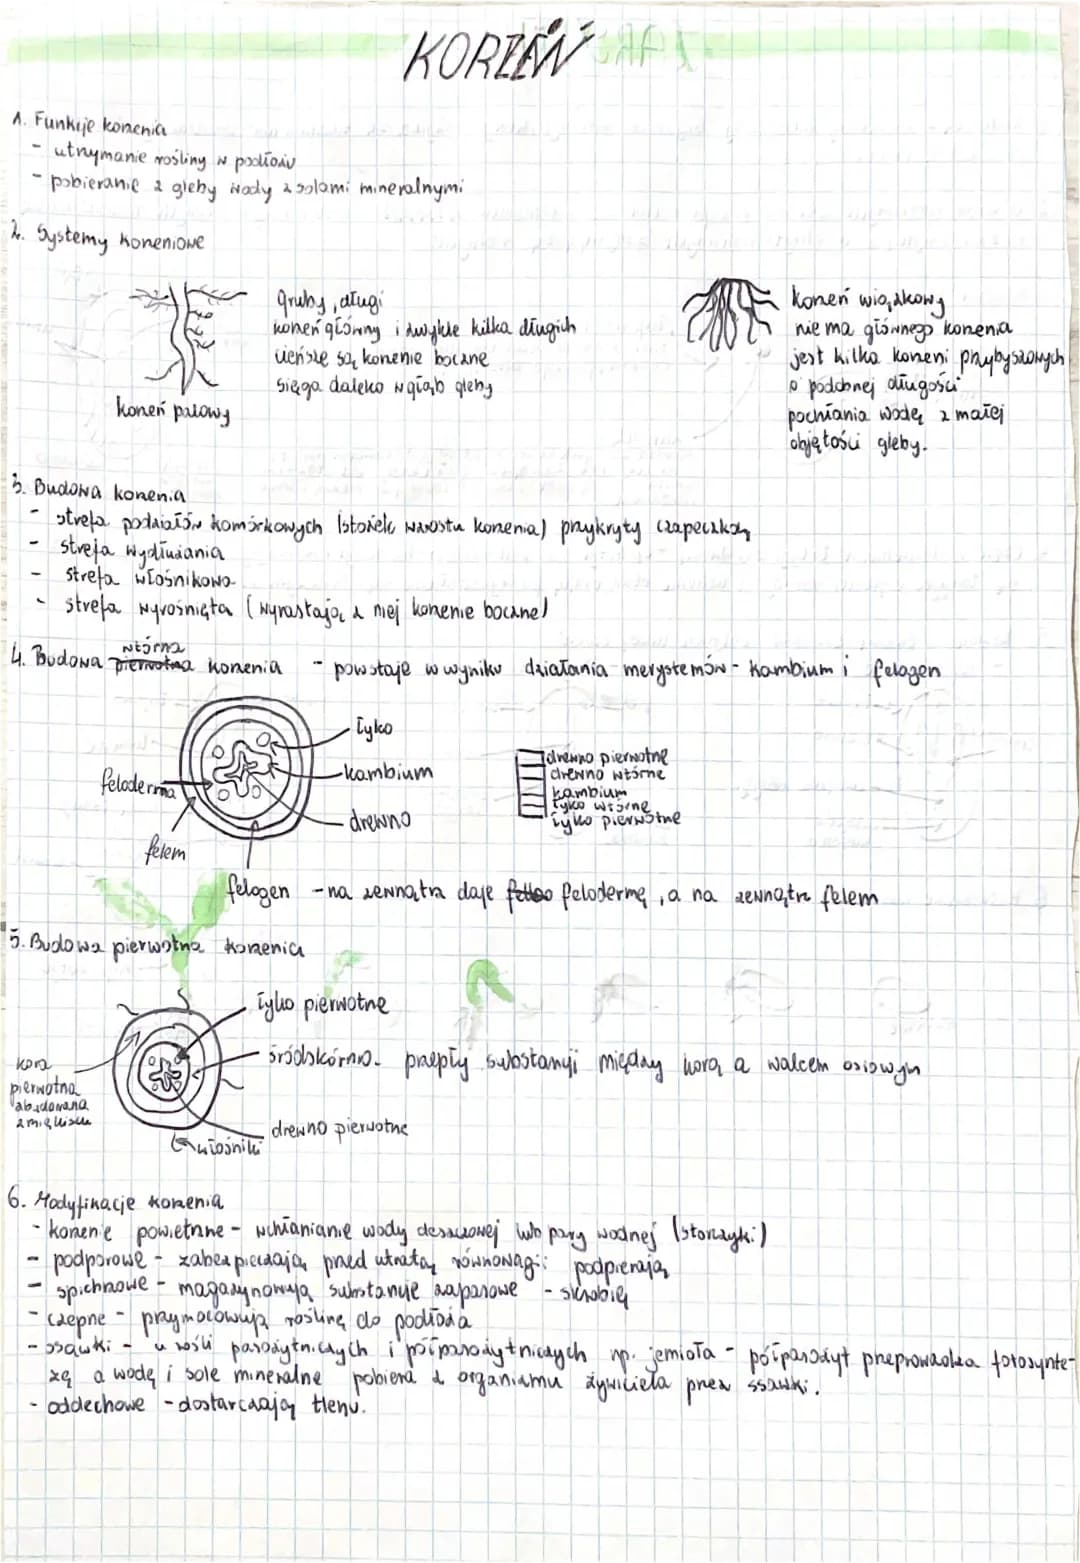 KORZEŃ
1. Funkcje korzenia
- utrzymanie rośliny w podłożu
- pobieranie z gleby wody z solami mineralnymi
2. Systemy korzeniowe
korzeń palowy
gruby, długi
korzeń główny i zwykle kilka długich
cieńsze są korzenie boczne
sięga daleko w głąb gleby
korzeń wiązkowy
nie ma głównego korzenia
jest kilka korzeni przybyszowych
o podobnej długości
pochłania wodę z małej
objętości gleby.
3. Budowa korzenia
- strefa podziałów komórkowych (stożek wzrostu korzenia) przykryty czapeczką
- strefa wydłużania
- strefa włośnikowa
- strefa wyrośnięta (wyrastają z niej korzenie boczne)
wtórna
4. Budowa pierwotna korzenia - powstaje w wyniku działania merystemów - kambium i felogen
łyko
kambium
drewno
feloderma
felem
drewno pierwotne
drewno wtórne
kambium
łyko wtórne
łyko pierwotne
felogen - na zewnątrz daje felodermę, a na zewnątrz felem
5. Budowa pierwotna korzenia
łyko pierwotne
śródskórnia - przepływ substancji między korą a walcem osiowym
drewno pierwotne
włośniki
kora
pierwotna
zbudowana
z miękiszu
6. Modyfikacje korzenia
- korzenie powietrzne - wchłanianie wody deszczowej lub pary wodnej (storczyki)
- podporowe - zabezpieczają przed utratą równowagi: podpierają
- spichrzowe - magazynowują substancje zapasowe - skrobię
- czepne - przymocowują roślinę do podłoża
- ssawki - u rośli pasożytniczych i półpasożytniczych np. jemioła - półpasożyt przeprowadza fotosynte-
zę a wodę i sole mineralne pobiera z organizmu żywiciela przez ssawki.
- oddechowe - dostarczają tlenu.